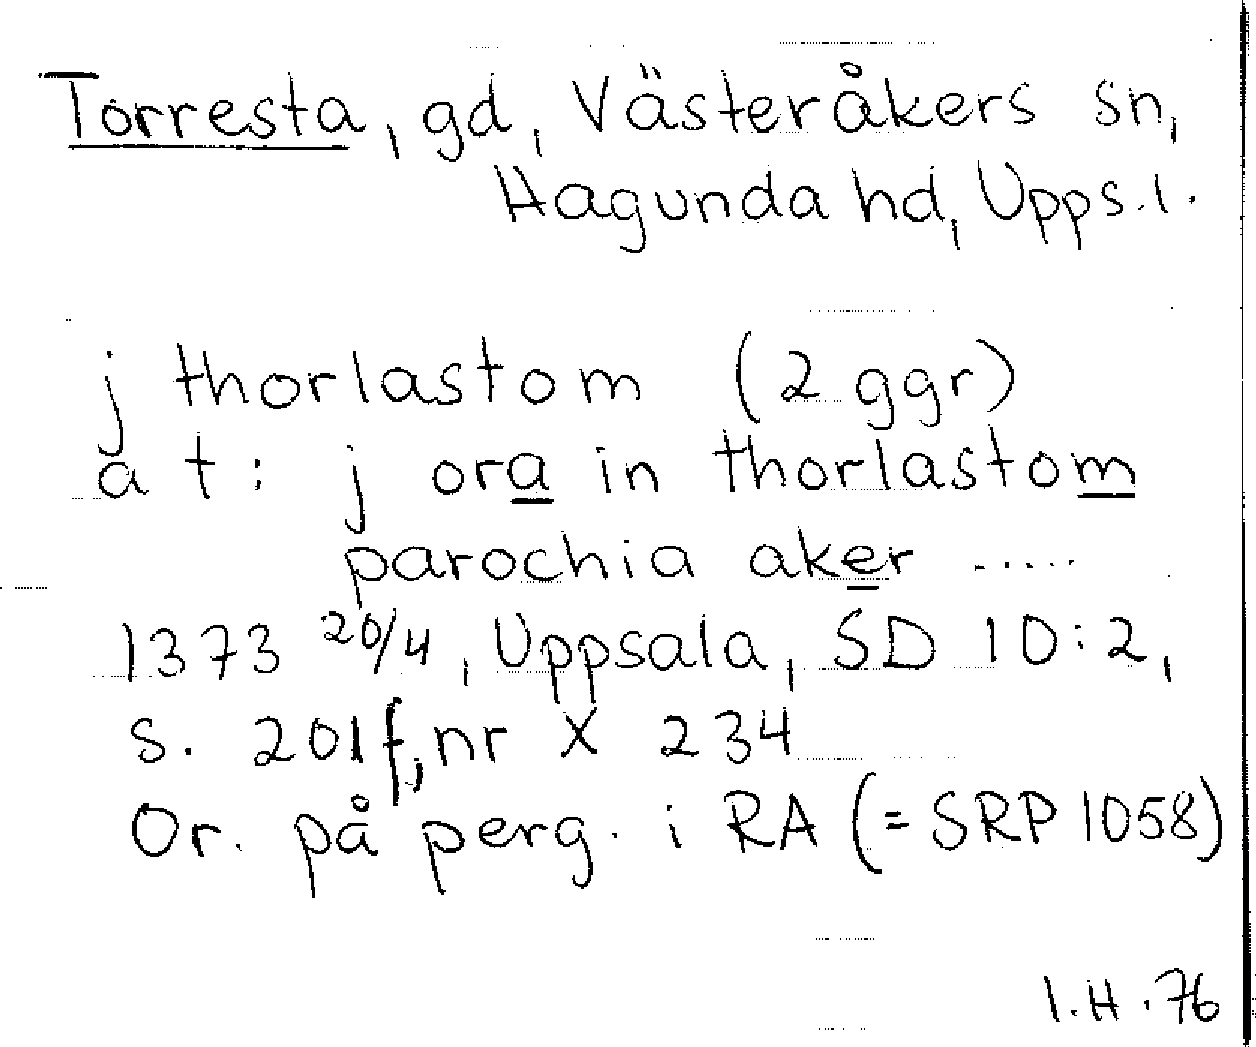 Torresta, gd, Västeråkers sn,
Hagunda hd, Upps.l.
j thorlastom (2 ggr)
a t: j ora in thorlastom
parochia aker .....
1373 20/4, Uppsala, SD 10:2,
s. 201f, nr X 234
Or. på perg. i RA (= SRP 1058)
I.H. 76